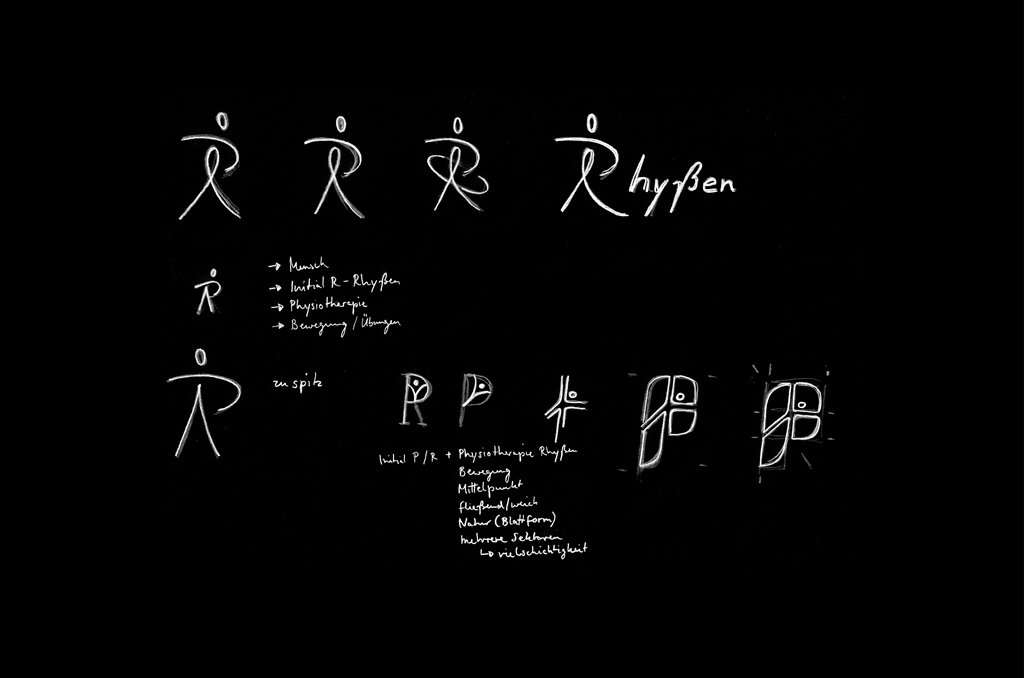 Rhyßen
→ Mensch
→ Initial R - Rhyßen
→ Physiotherapie
→ Bewegung / Übungen
zu spitz
Initial P/R + Physiotherapie Rhyßen
Bewegung
Mittelpunkt
fließend/weich
Natur (Blattform)
mehrere Sektoren
↳ vielschichtigkeit